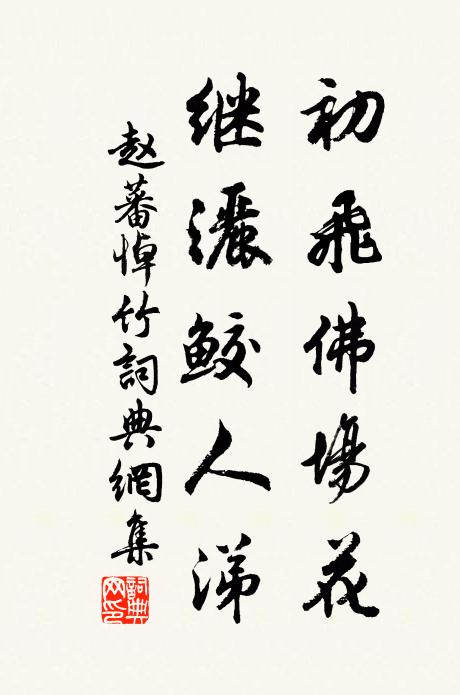 初飛佛場花
继灑鲛人涕
赵蕃悼竹詞典網集
詞典网印